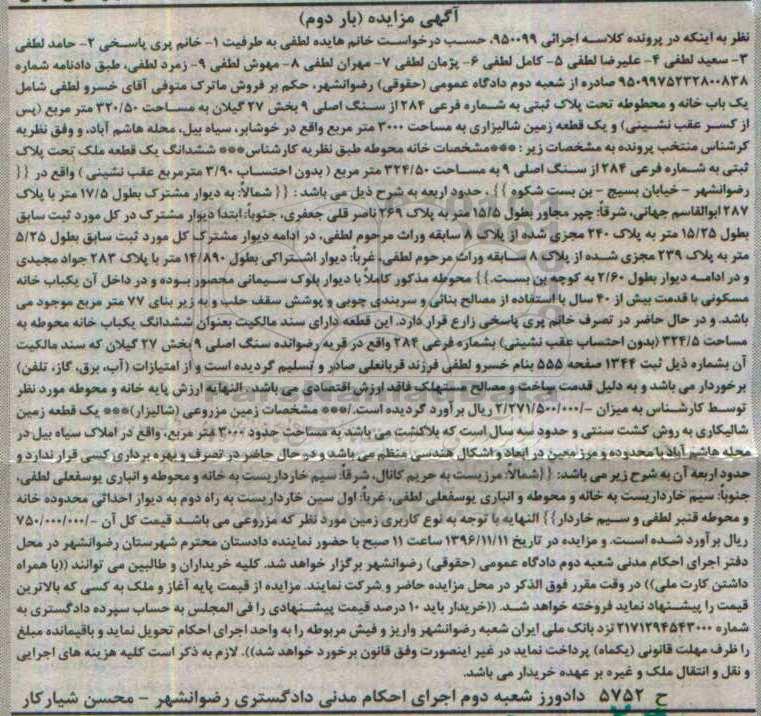 آگهی مزایده (بار دوم)
نظر به اینکه در پرونده کلاسه اجرائی ۹۵۰۰۹۹، حسب درخواست خانم هایده لطفی به طرفیت ۱- خانم پری پاسخی ۲- حامد لطفی
۳- سعید لطفی ۴- علیرضا لطفی ۵- کامل لطفی ۶- پژمان لطفی ۷- مهران لطفی ۸- مهوش لطفی ۹- زمرد لطفی، طبق دادنامه شماره
۹۵۰۹۹۷۵۲۳۲۸۰۰۸۳۸ صادره از شعبه دوم دادگاه عمومی (حقوقی) رضوانشهر، حکم بر فروش ماترک متوفی آقای خسرو لطفی شامل
یک باب خانه و محطوطه تحت پلاک ثبتی به شماره فرعی ۲۸۴ از سنگ اصلی ۹ بخش ۲۷ گیلان به مساحت ۳۲۰/۵۰ متر مربع (پس
از کسر عقب نشینی) و یک قطعه زمین شالیزاری به مساحت ۳۰۰۰ متر مربع واقع در خوشابر، سیاه بیل، محله هاشم آباد، و وفق نظریه
کرشناس منتخب پرونده به مشخصات زیر : ***مشخصات خانه محوطه طبق نظریه کارشناس*** ششدانگ یک قطعه ملک تحت پلاک
ثبتی به شماره فرعی ۲۸۴ از سنگ اصلی ۹ به مساحت ۳۲۴/۵۰ متر مربع ( بدون احتساب ۳/۹۰ مترمربع عقب نشینی ) واقع در {{
رضوانشهر - خیابان بسیج - بن بست شکوه }} ، حدود اربعه به شرح ذیل می باشد : {{ شمالاً: به دیوار مشترک بطول ۱۷/۵ متر با پلاک
۲۸۷ ابوالقاسم جهانی، شرقاً: چپر مجاور بطول ۱۵/۵ متر به پلاک ۲۶۹ ناصر قلی جعفری، جنوباً: ابتدا دیوار مشترک در کل مورد ثبت سابق
بطول ۱۵/۲۵ متر به پلاک ۲۴۰ مجزی شده از پلاک ۸ سابقه وراث مرحوم لطفی، در ادامه دیوار مشترک کل مورد ثبت سابق بطول ۵/۲۵
متر به پلاک ۲۳۹ مجزی شده از پلاک ۸ سابقه وراث مرحوم لطفی، غرباً: دیوار اشتراکی بطول ۱۴/۸۹۰ متر با پلاک ۲۸۳ جواد مجیدی
و در ادامه دیوار بطول ۲/۶۰ به کوچه بن بست.}} محوطه مذکور کاملاً با دیوار بلوک سیمانی محصور بوده و در داخل آن یکباب خانه
مسکونی با قدمت بیش از ۴۰ سال با استفاده از مصالح بنائی و سربندی چوبی و پوشش سقف حلب و به زیر بنای ۷۷ متر مربع موجود می
باشد. و در حال حاضر در تصرف خانم پری پاسخی زارع قرار دارد. این قطعه دارای سند مالکیت بعنوان ششدانگ یکباب خانه محوطه به
مساحت ۳۲۴/۵ (بدون احتساب عقب نشینی) بشماره فرعی ۲۸۴ واقع در قریه رضوانده سنگ اصلی ۹ بخش ۲۷ گیلان که سند مالکیت
آن بشماره ذیل ثبت ۱۳۴۴ صفحه ۵۵۵ بنام خسرو لطفی فرزند قربانعلی صادر و تسلیم گردیده است و از امتیازات (آب، برق، گاز، تلفن)
برخوردار می باشد و به دلیل قدمت ساخت و مصالح مستهلک فاقد ارزش اقتصادی می باشد. النهایه ارزش پایه خانه و محوطه مورد نظر
توسط کارشناس به میزان -/۲/۲۷۱/۵۰۰/۰۰۰ ریال برآورد گردیده است./*** مشخصات زمین مزروعی (شالیزار)*** یک قطعه زمین
شالیکاری به روش کشت سنتی و حدود سه سال است که بلاکشت می باشد به مساحت حدود ۳۰۰۰ متر مربع، واقع در املاک سیاه بیل در
محله هاشم آباد با محدوده و مرز معین در ابعاد و اشکال هندسی منظم می باشد و در حال حاضر در تصرف و بهره برداری کسی قرار ندارد و
حدود اربعه آن به شرح زیر می باشد: {{شمالاً: مرزیست به حریم کانال، شرقاً: سیم خارداریست به خانه و محوطه و انباری یوسفعلی لطفی،
جنوباً: سیم خارداریست به خانه و محوطه و انباری یوسفعلی لطفی، غرباً: اول سین خارداریست به راه دوم به دیوار احداثی محدوده خانه
و محوطه قنبر لطفی و سیم خاردار}} النهایه با توجه به نوع کاربری زمین مورد نظر که مزروعی می باشد قیمت کل آن -/۷۵۰/۰۰۰/۰۰۰
ریال برآورد شده است. و مزایده در تاریخ ۱۳۹۶/۱۱/۱۱ ساعت ۱۱ صبح با حضور نماینده دادستان محترم شهرستان رضوانشهر در محل
دفتر اجرای احکام مدنی شعبه دوم دادگاه عمومی (حقوقی) رضوانشهر برگزار خواهد شد. کلیه خریداران و طالبین می توانند ((با همراه
داشتن کارت ملی)) در وقت مقرر فوق الذکر در محل مزایده حاضر و شرکت نمایند. مزایده از قیمت پایه آغاز و ملک به کسی که بالاترین
قیمت را پیشنهاد نماید فروخته خواهد شد. ((خریدار باید ۱۰ درصد قیمت پیشنهادی را فی المجلس به حساب سپرده دادگستری به
شماره ۲۱۷۱۲۹۴۵۴۳۰۰۰ نزد بانک ملی ایران شعبه رضوانشهر واریز و فیش مربوطه را به واحد اجرای احکام تحویل نماید و باقیمانده مبلغ
را ظرف مهلت قانونی (یکماه) پرداخت نماید در غیر اینصورت وفق قانون برخورد خواهد شد)). لازم به ذکر است کلیه هزینه های اجرایی
و نقل و انتقال ملک و غیره بر عهده خریدار می باشد.
ح ۵۷۵۲ دادورز شعبه دوم اجرای احکام مدنی دادگستری رضوانشهر - محسن شیارکار